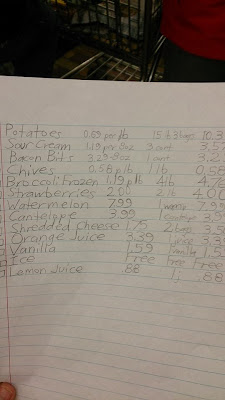 Potatoes 0.69 per lb 15 lb 3 bags 10.3
Sour Cream 1.19 per 8oz 3 cont 3.57
Bacon Bits 3.29-8oz 1 cont 3.2
Chives 0.58 p lb 1 lb 0.58
Broccoli Frozen 1.19 p lb 4 lb 4.76
Strawberries 2.00 2 lb 4.00
Watermelon 7.99 1 7.99
Cantelope 3.99 1 3.9
Shredded Cheese 1.75 2 bags 3.5
Orange Juice 3.39 1 juice 3.39
Vanilla 1.59 1 vanilla 1.5
Ice Free Free Free
Lemon Juice .88 1j .88